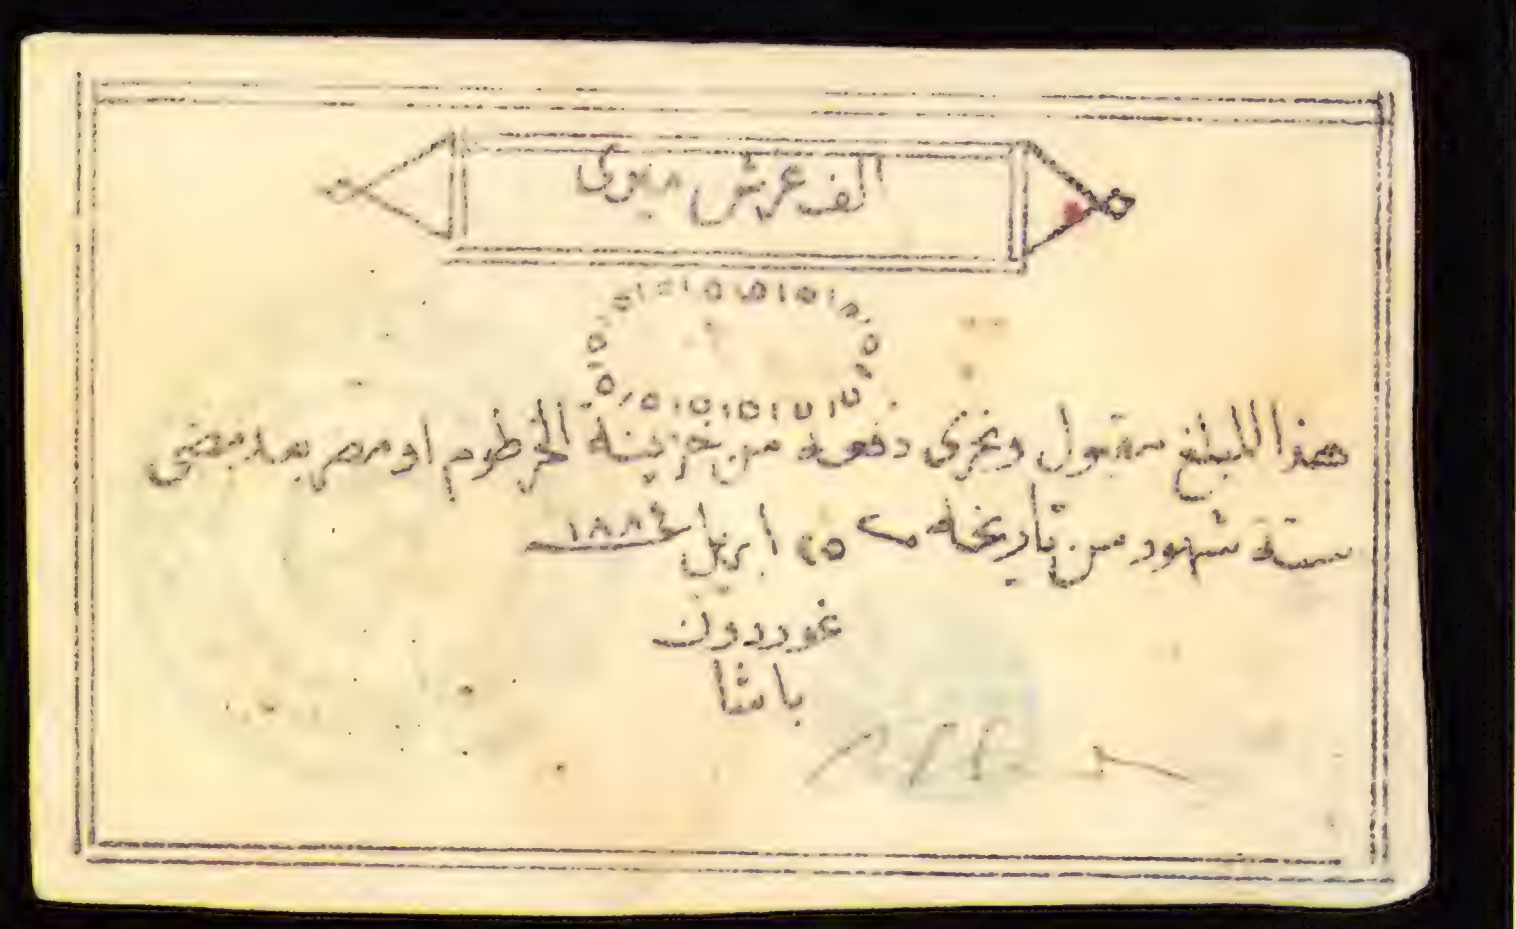 الف غرش ميرى
هذا المبلغ مقبول ويجرى دفعه من خزينة الخرطوم او مصر بعد مضى
ستة شهور من تاريخه ٢٥ ابريل ١٨٨٤
غوردون
باشا